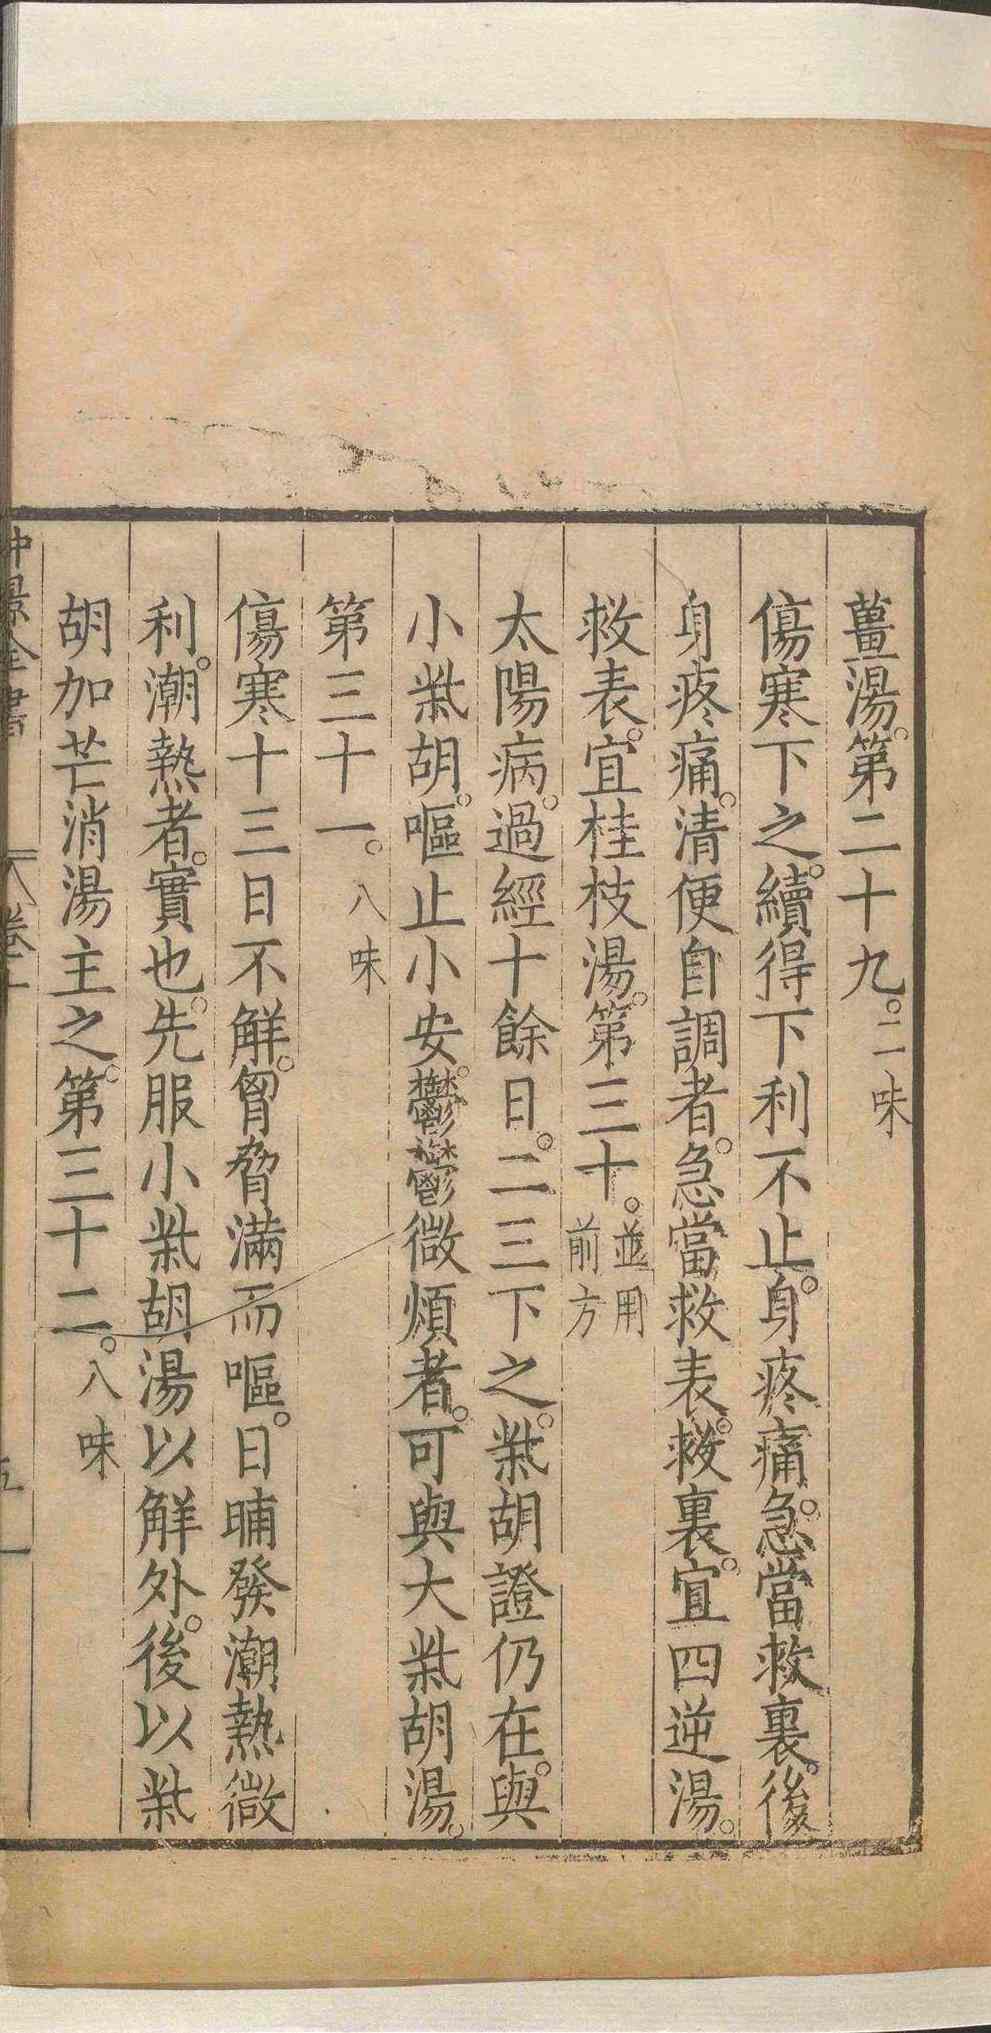 薑湯。第二十九。二味
傷寒下之。續得下利不止。身疼痛。急當救裏。後
身疼痛。清便自調者。急當救表。救裏。宜四逆湯。
救表。宜桂枝湯。第三十。並用前方
太陽病。過經十餘日。二三下之。柴胡證仍在。與
小柴胡。嘔止小安。鬱鬱微煩者。可與大柴胡湯。
第三十一。八味
傷寒十三日不解。胷脅滿而嘔。日晡發潮熱微
利。潮熱者。實也。先服小柴胡湯以解外。後以柴
胡加芒消湯主之。第三十二。八味
仲景全書 卷二 五